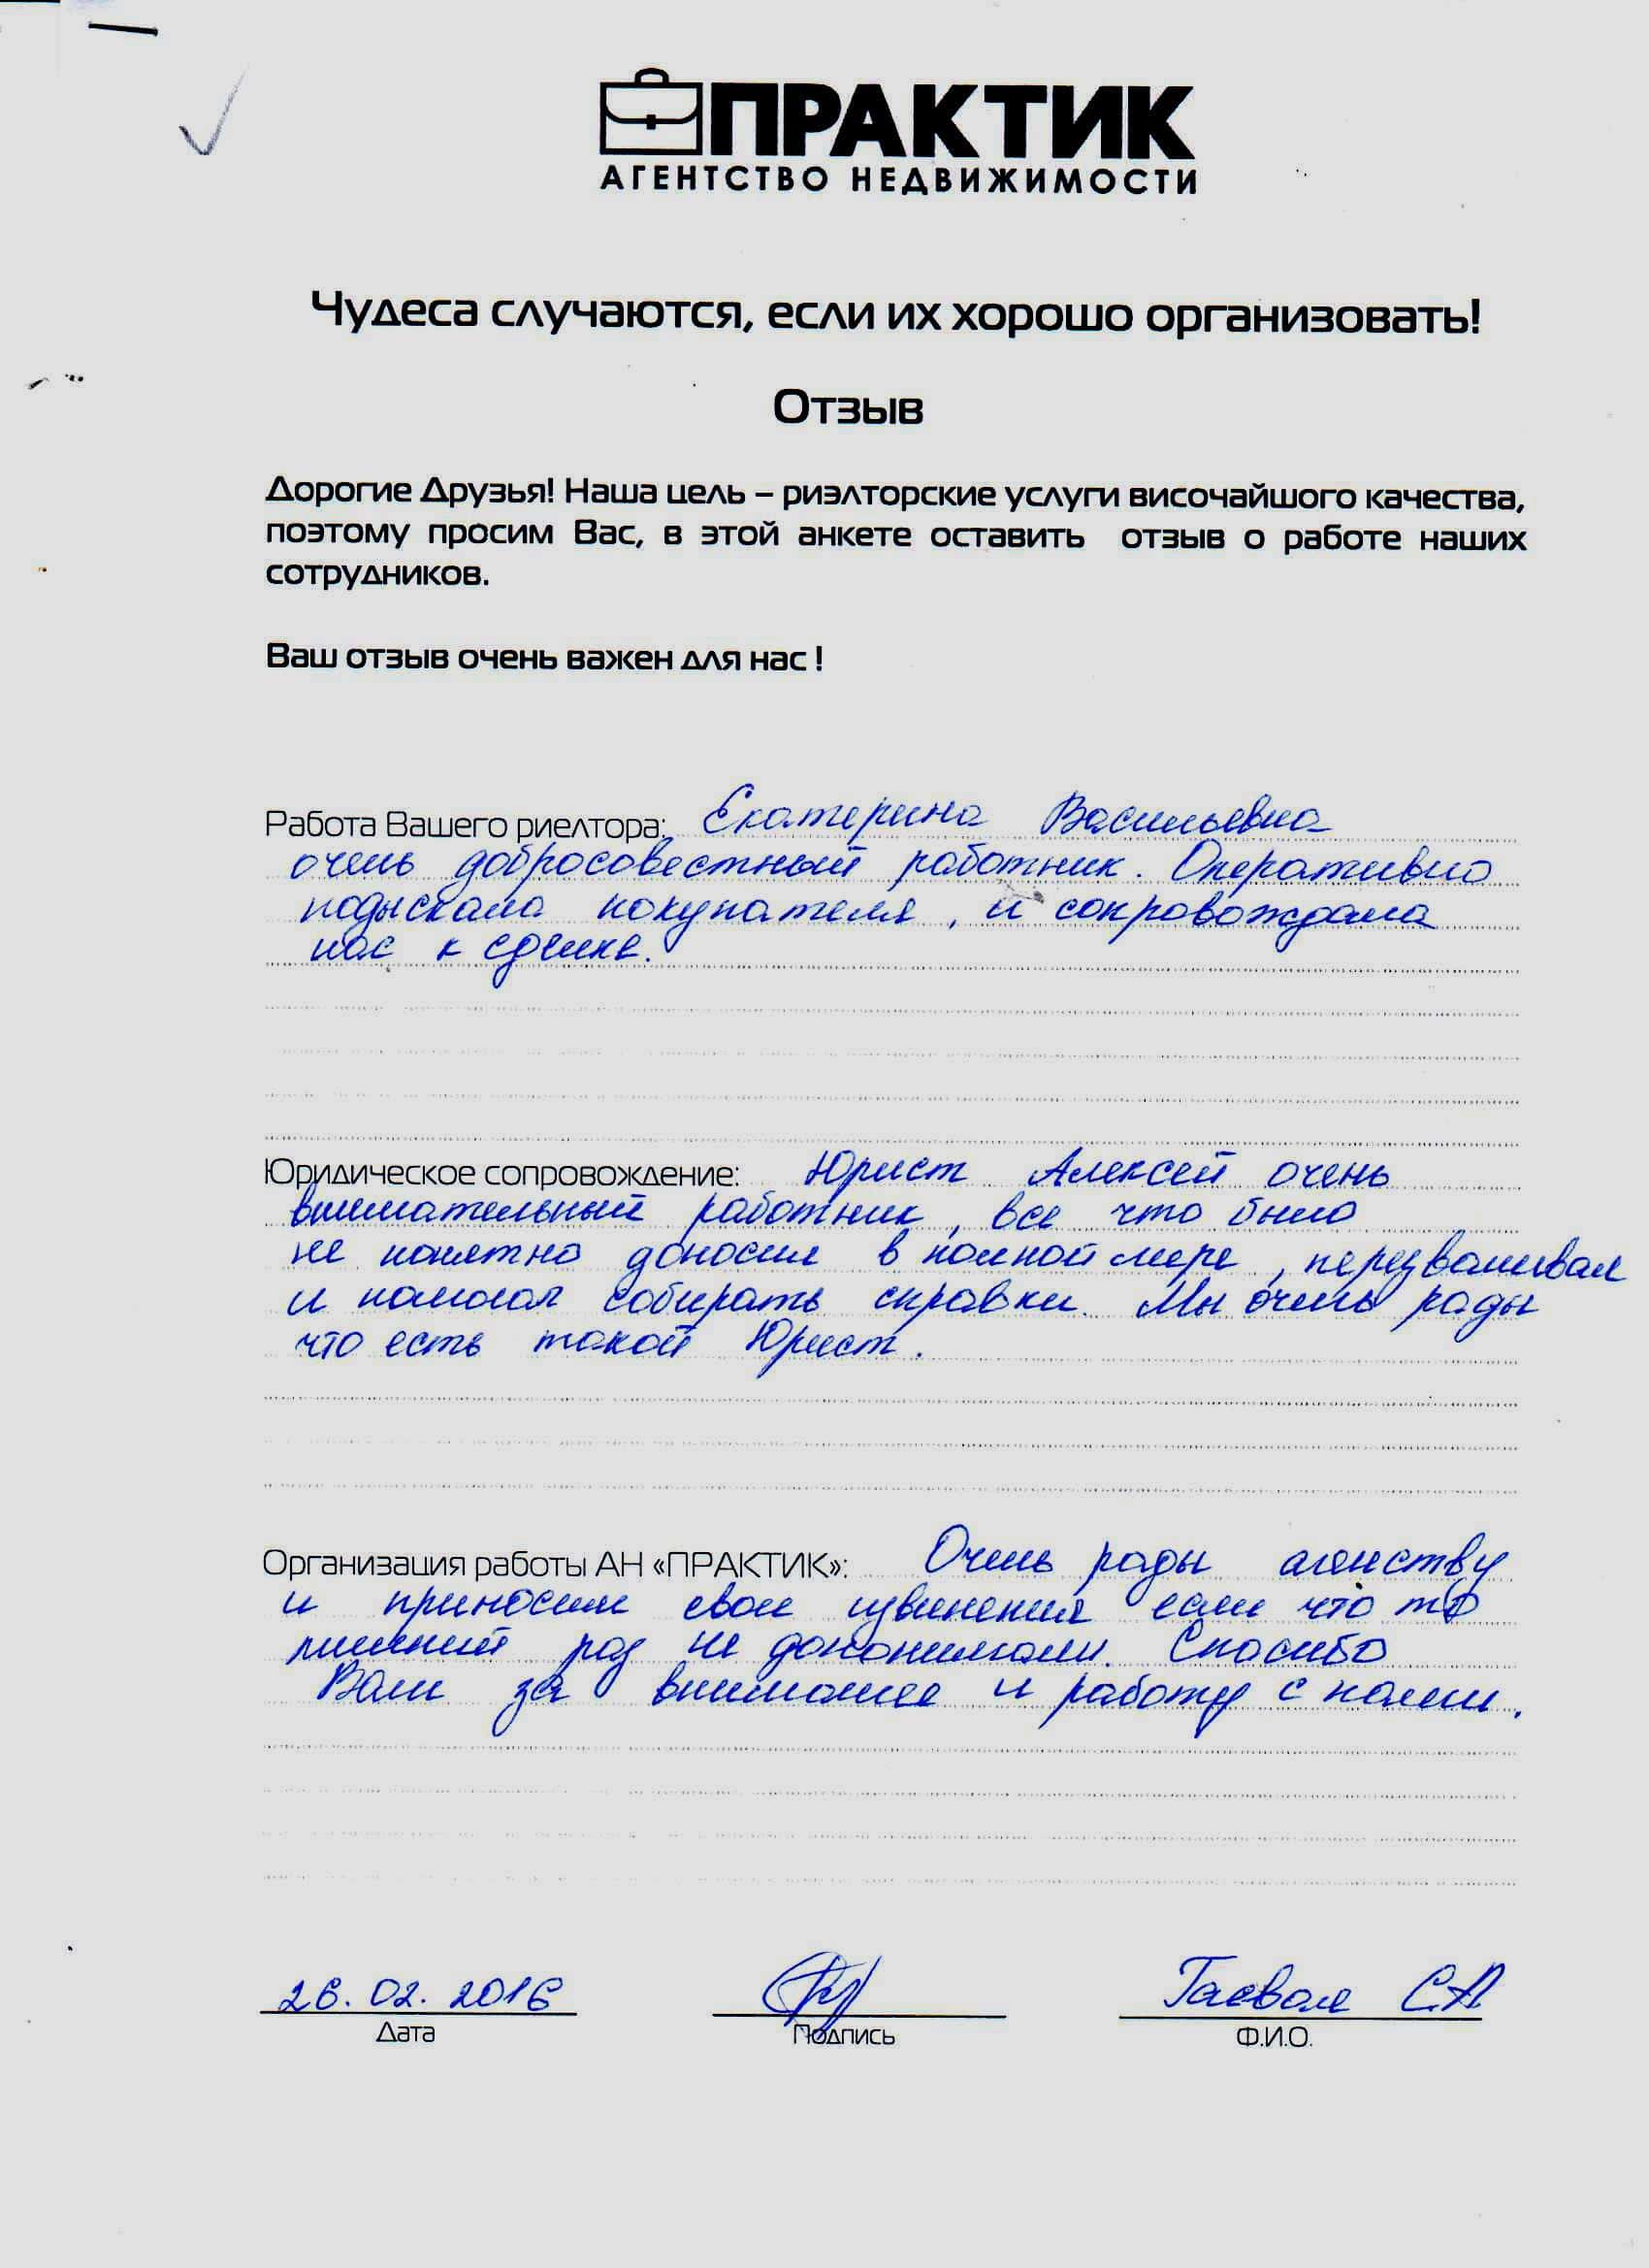 ПРАКТИК
АГЕНТСТВО НЕДВИЖИМОСТИ
Чудеса случаются, если их хорошо организовать!
Отзыв
Дорогие Друзья! Наша цель – риэлторские услуги височайшого качества,
поэтому просим Вас, в этой анкете оставить отзыв о работе наших
сотрудников.
Ваш отзыв очень важен для нас !
Работа Вашего риелтора: Екатерина Васильевна
очень добросовестный работник. Оперативно
подыскала покупателя, и сопровождала
нас к сделке.
Юридическое сопровождение: Юрист Алексей очень
внимательный работник, все что было
не понятно доносил в полной мере, перезванивал
и помогал собирать справки. Мы очень рады
что есть такой Юрист.
Организация работы АН «ПРАКТИК»: Очень рады агенству
и приносим свои извинения если что то
лишний раз не допонимали. Спасибо
Вам за внимание и работу с нами.
26.02.2016
Дата
Подпись
С.А.
Ф.И.О.